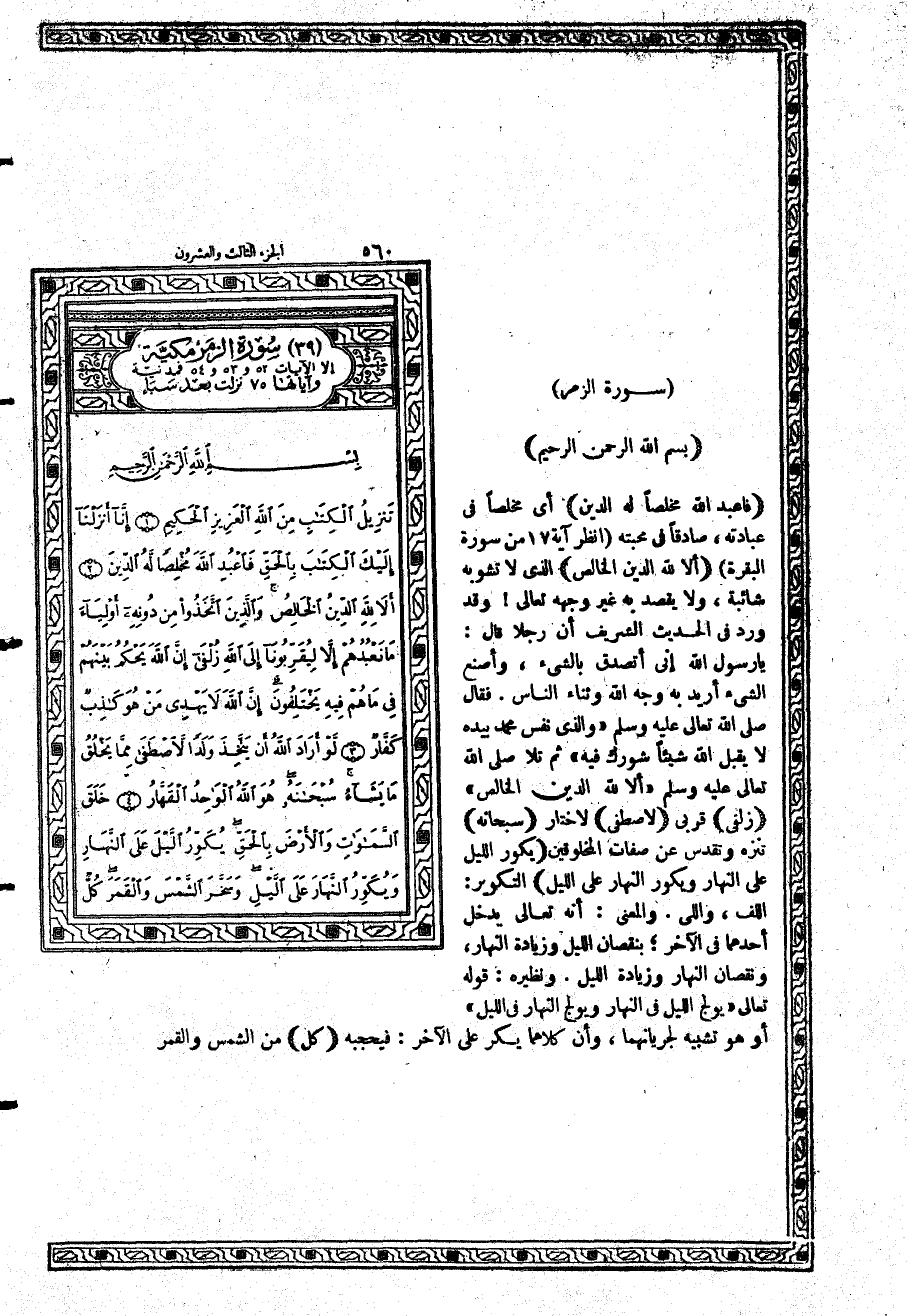 ٥٦٠
الجزء الثالث والعشرون
(٣٩) سُورَة الزمر مَكيَّة
إلا الآيات ٥٢ و ٥٣ و ٥٤ فمدنية
وآياتها ٧٥ نزلت بعد سَبَأ
بِسْـــــمِ ٱللَّهِ ٱلرَّحْمَٰنِ ٱلرَّحِيمِ
تَنزِيلُ ٱلْكِتَٰبِ مِنَ ٱللَّهِ ٱلْعَزِيزِ ٱلْحَكِيمِ ۝١ إِنَّآ أَنزَلْنَآ
إِلَيْكَ ٱلْكِتَٰبَ بِٱلْحَقِّ فَٱعْبُدِ ٱللَّهَ مُخْلِصًا لَّهُ ٱلدِّينَ ۝٢
أَلَا لِلَّهِ ٱلدِّينُ ٱلْخَالِصُ ۚ وَٱلَّذِينَ ٱتَّخَذُوا۟ مِن دُونِهِۦٓ أَوْلِيَآءَ
مَا نَعْبُدُهُمْ إِلَّا لِيُقَرِّبُونَآ إِلَى ٱللَّهِ زُلْفَىٰٓ إِنَّ ٱللَّهَ يَحْكُمُ بَيْنَهُمْ
فِى مَا هُمْ فِيهِ يَخْتَلِفُونَ ۗ إِنَّ ٱللَّهَ لَا يَهْدِى مَنْ هُوَ كَٰذِبٌ
كَفَّارٌ ۝٣ لَّوْ أَرَادَ ٱللَّهُ أَن يَتَّخِذَ وَلَدًا لَّٱصْطَفَىٰ مِمَّا يَخْلُقُ
مَا يَشَآءُ ۚ سُبْحَٰنَهُۥ ۖ هُوَ ٱللَّهُ ٱلْوَٰحِدُ ٱلْقَهَّارُ ۝٤ خَلَقَ
ٱلسَّمَٰوَٰتِ وَٱلْأَرْضَ بِٱلْحَقِّ ۖ يُكَوِّرُ ٱلَّيْلَ عَلَى ٱلنَّهَارِ
وَيُكَوِّرُ ٱلنَّهَارَ عَلَى ٱلَّيْلِ ۖ وَسَخَّرَ ٱلشَّمْسَ وَٱلْقَمَرَ ۖ كُلٌّ
(ســورة الزمر)
(بسم الله الرحمن الرحيم)
(فاعبد الله مخلصاً له الدين) أى مخلصاً فى
عبادته ، صادقاً فى محبته (انظر آية ١٧ من سورة
البقرة) (ألا لله الدين الخالص) الذى لا تشوبه
شائبة ، ولا يقصد به غير وجهه تعالى ! وقد
ورد فى الحديث الشريف أن رجلا قال :
يارسول الله إنى أتصدق بالشىء ، وأصنع
الشىء أريد به وجه الله وثناء الناس . فقال
صلى الله تعالى عليه وسلم «والذى نفس محمد بيده
لا يقبل الله شيئاً شورك فيه» ثم تلا صلى الله
تعالى عليه وسلم «ألا لله الدين الخالص»
(زلفى) قربى (لاصطفى) لاختار (سبحانه)
تنزه وتقدس عن صفات المخلوقين (يكور الليل
على النهار ويكور النهار على الليل) التكوير:
اللف ، واللى . والمعنى : أنه تعالى يدخل
أحدهما فى الآخر ؛ بنقصان الليل وزيادة النهار،
ونقصان النهار وزيادة الليل . ونظيره : قوله
تعالى «يولج الليل فى النهار ويولج النهار فى الليل»
أو هو تشبيه لجريانهما ، وأن كلاهما يكر على الآخر : فيحجبه (كل) من الشمس والقمر